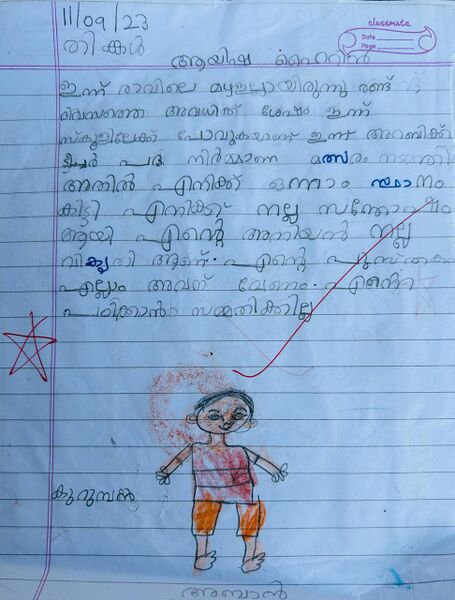 11/09/23
തിങ്കൾ
classmate
Date
Page
ആയിഷ ഹൈറിൻ
ഇന്ന് രാവിലെ മഴഇല്ലായിരുന്നു രണ്ട്
ദിവസത്തെ അവധിക്ക് ശേഷം ഇന്ന്
സ്കൂളിലേക്ക് പോവുകയാണ് ഇന്ന് അറബിക്ക്
ടീച്ചർ പദ നിർമ്മാണ മത്സരം നടത്തി
അതിൽ എനിക്ക് ഒന്നാം സ്ഥാനം
കിട്ടി എനിക്ക് നല്ല സന്തോഷം
ആയി എന്റെ അനിയൻ നല്ല
വികൃതി ആണ്. എന്റെ പുസ്തകം
എല്ലാം അവന് വേണം. എന്നെ
പഠിക്കാൻ സമ്മതിക്കില്ല
കുറുമ്പൻ
അബാൻ